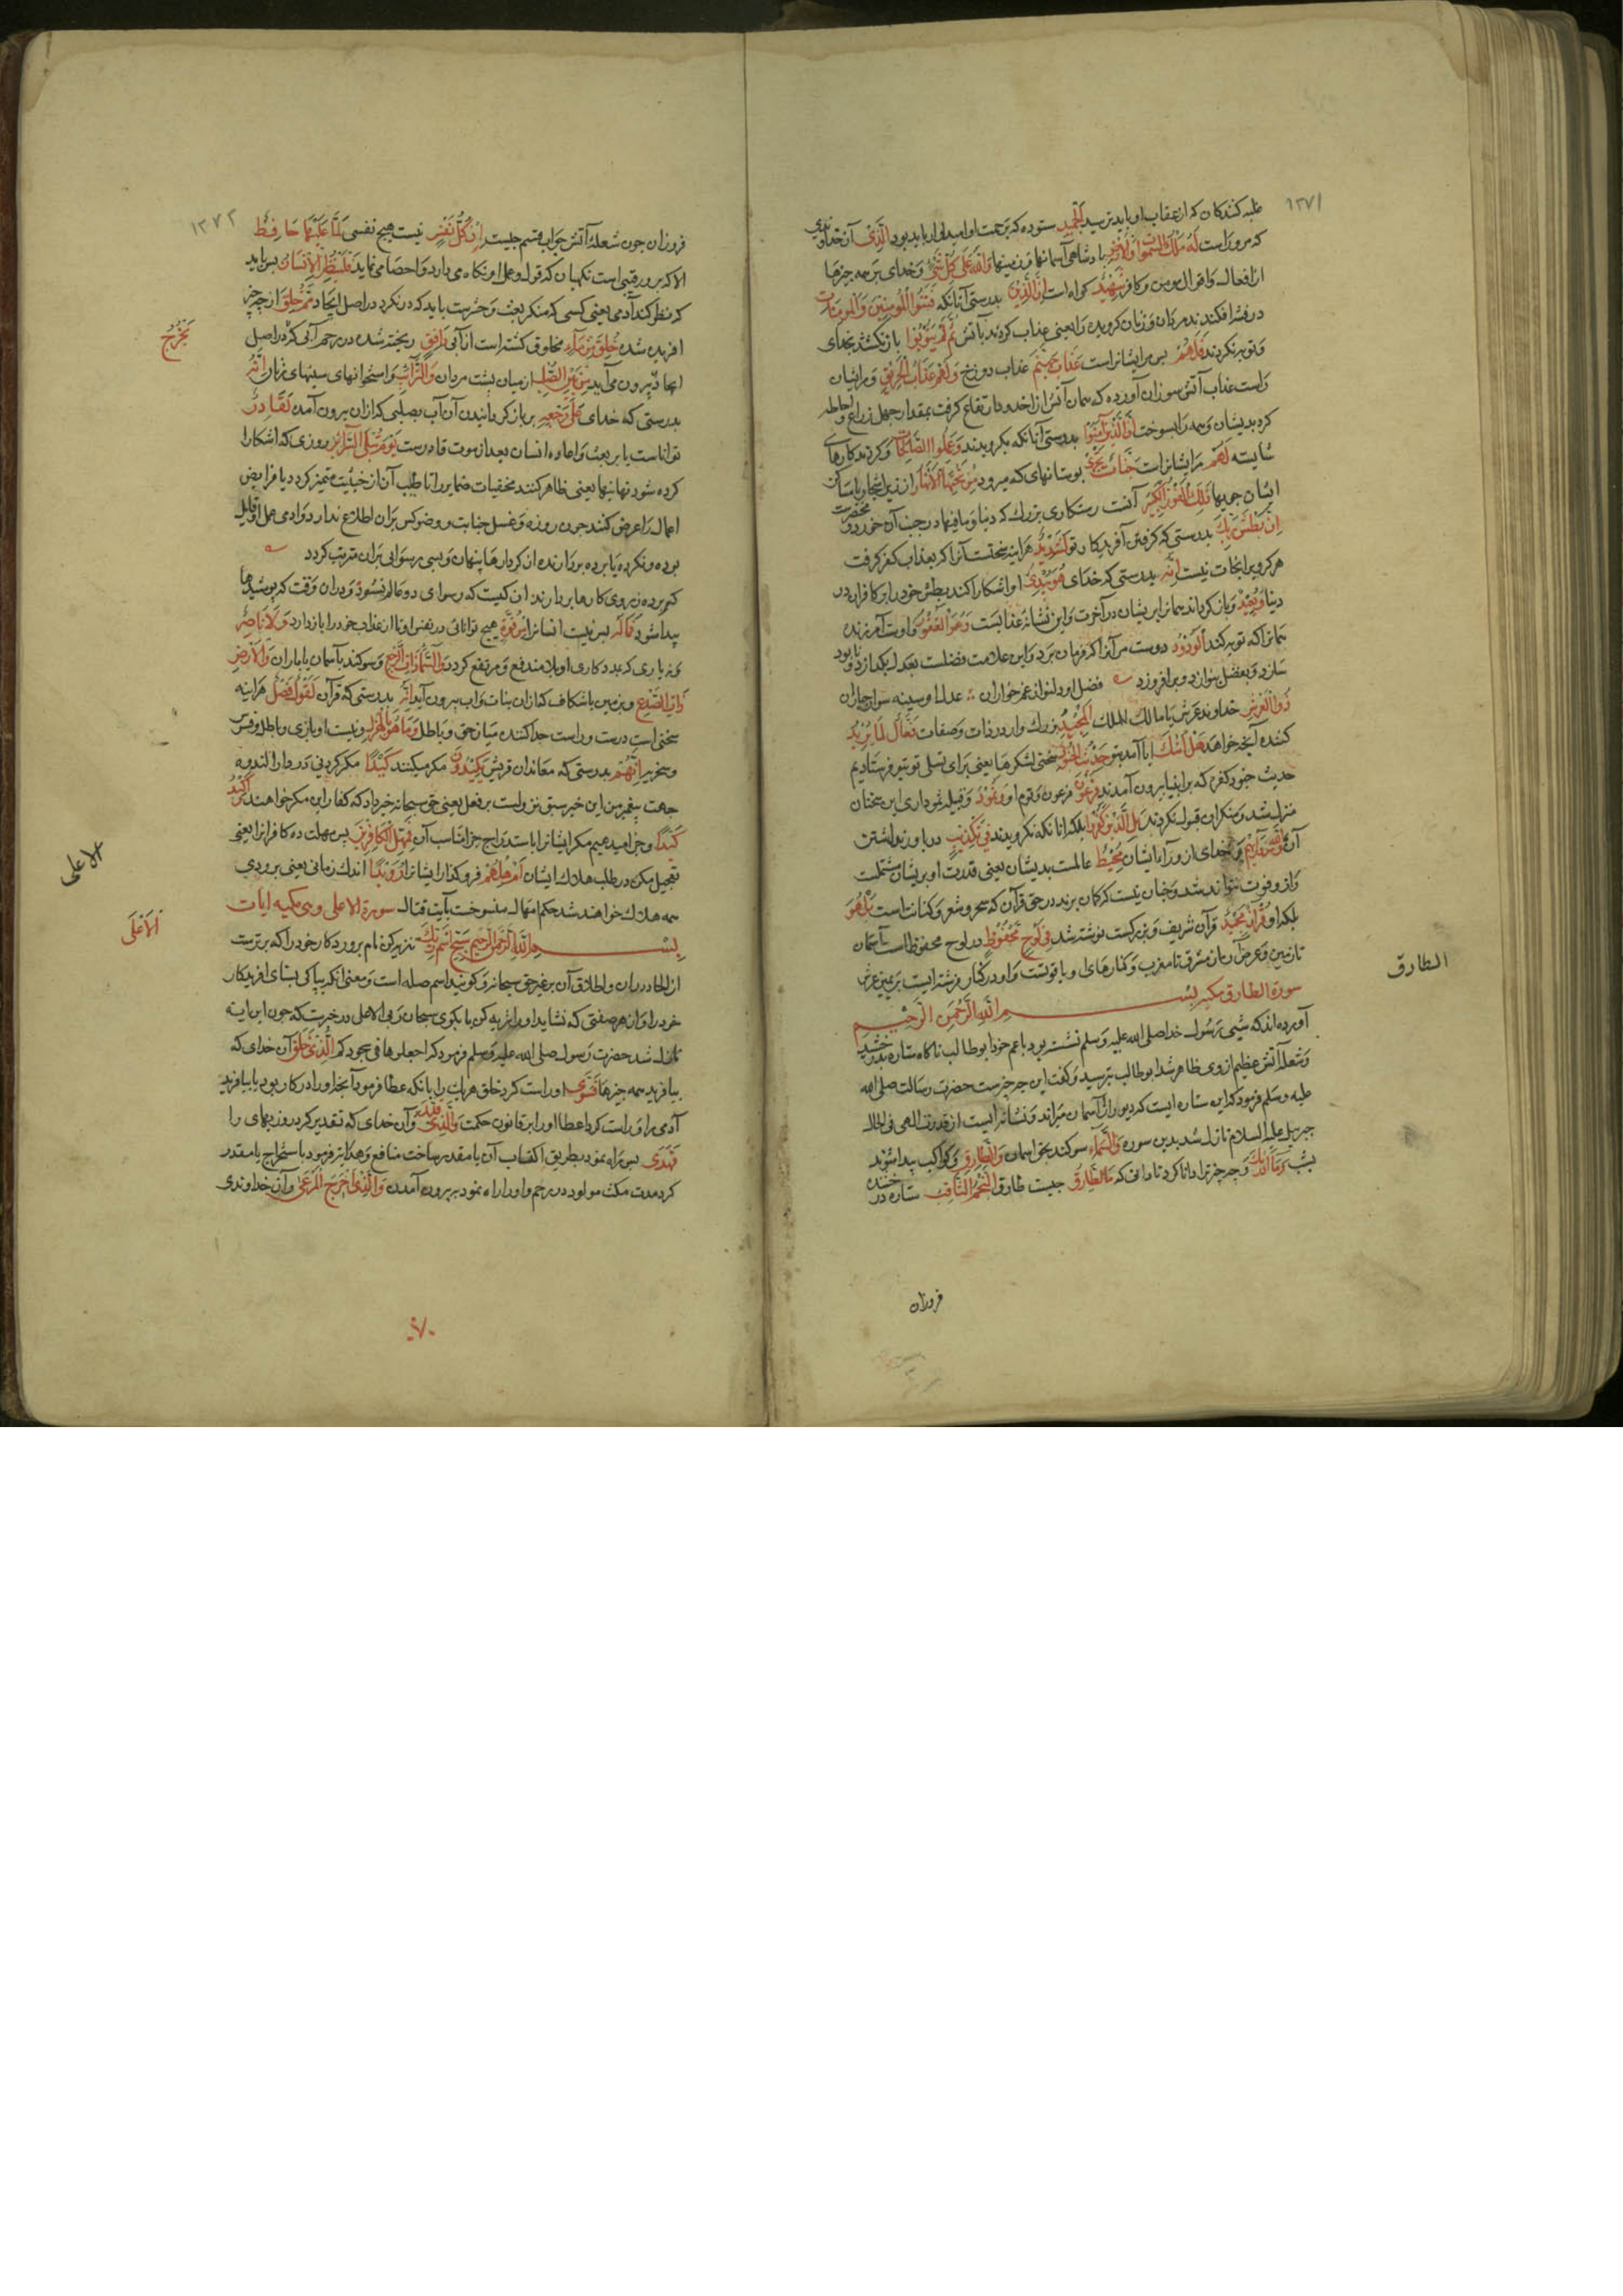 ١٣٧١
غلبه کنندکان که از عقاب او باید ترسید الحمید ستوده که برحمت او امیدواری باید بود الذی آن خداوندی
که مر وراست له ملک السموات والارض پادشاهی آسمانها و زمینها والله علی کل شئ و خدای بر همه چیزها
از افعال و اقوال مومن و کافر شهید کواه است ان الذین بدرستی آنانکه فتنوا المومنین والمومنات
در فتنه افکندند مردان و زنان کرویده را یعنی عذاب کردند بآتش ثم لم یتوبوا باز نکشتند بخدای
و توبه نکردند فلهم پس مر ایشانراست عذاب جهنم عذاب دوزخ ولهم عذاب الحریق و مر ایشان
راست عذاب آتش سوزان آورده که همان آتش از اخدود ارتفاع کرفت بمقدار چهل زراع و احاطه
کرد بدیشان و همه را بسوخت ان الذین آمنوا بدرستی آنانکه بکرویدند وعملوا الصالحات و کردند کارهای
شایسته لهم مر ایشانراست جنات تجری بوستانهای که میرود من تحتها الانهار از زیر اشجار یا مساکن
ایشان جویها ذلک الفوز الکبیر آنست رستکاری بزرک که دنیا و مافیها در جنب آن خورد و مختصرست
ان بطش ربک بدرستی که کرفتن آفریدکار تو لشدید هر اینه سختست آنرا که بعذاب کفر کرفت
هرکز ویرا نجات نیست انه بدرستی که خدای هو یبدئ او اشکارا کند بطش خود را بر کافران در
دنیا ویعید و باز کرداند همانرا بریشان در آخرت و این نشانه عذابست وهو الغفور و اوست آمرزنده
همانرا که توبه کند الودود دوست مر آنرا که فرمان برد و این علامت فضلست بعدل بکدازد و نابود
سازد و بفضل بنوازد و برافروزد فضل او دلنواز غم خواران عدل او سینه سوز جباران
ذو العرش خداوند عرش یا مالک الملک المجید بزرک وار در ذات و صفات فعال لما یرید
کننده آنچه خواهد هل اتیک ایا آمد بتو حدیث الجنود سخن لشکرها یعنی برای تسلی تو بتو فرستادیم
حدیث جنود کفره که بر انبیا بیرون آمدند فرعون فرعون و قوم او وثمود و قبیله ثمود اری این سخنان
منزل شد و منکران قبول نکردند بل الذین کفروا بلکه انانکه نکرویدند فی تکذیب در باور نداشتن
آن والله من ورائهم و خدای از ورآء ایشان محیط عالمست بدیشان یعنی قدرت او بریشان مشتملست
و از و فوت نتواند شد و چنان نیست که کمان برند در حق قرآن که سحر و شعر و کهانتست بل هو
بلکه او قرآن مجید قرآن شریف و بزرکست نوشته شد فی لوح محفوظ در لوح محفوظ است از آسمان
تا زمین و عرض آن از مشرق تا مغرب و کنارهای او یاقوتست و او در کنار فرشته ایست بر یمین عرش
سورة الطارق مکیه بسم الله الرحمن الرحیم
آورده اند که شبی رسول خدا صلی الله علیه وسلم نشسته بود با عم خود ابوطالب ناکاه ستاره بدرخشید
و شعله آتش عظیم از وی ظاهر شد ابوطالب بترسید و کفت این چه چیزست حضرت رسالت صلی الله
علیه وسلم فرمود که این ستاره ایست که دیو را از آسمان میراند و نشانه ایست از قدرت الهی فی الحال
جبریل علیه السلام نازل شد بدین سوره والسماء سوکند بحق اسمان والطارق و کواکب پیدا شونده
بشب وما ادریک و چه چیز ترا دانا کرد تا دانی که ما الطارق چیست طارق النجم الثاقب ستاره درخشنده
فروزان
الطارق
١٣٧٢
فروزان چون شعله آتش جواب قسم چیست ان کل نفس نیست هیچ نفسی لما علیها حافظ
الا که برو رقیبی است نکهبان که قول و عمل او نکاه می دارد و احصا می نماید فلینظر الانسان پس باید
که نظر کند آدمی یعنی کسی که منکر بعث و حشرست باید که در نکرد در اصل ایجاد مم خلق از چه چیز
افریده شده خلق من ماء مخلوق کشته است از آبی دافق ریخته شده در رحم آبی که در اصل
ایجاد بیرون می آید من بین الصلب از میان پشت مردان والترائب و استخوانهای سینهای زنان انه
بدرستی که خدای علی رجعه بر باز کردانیدن آن آب بصلبی که ازان بیرون آمد لقادر
تواناست یا بر بعث و اعاده انسان بعد از موت قادرست یوم تبلی السرائر روزی که اشکارا
کرده شود نهانیها یعنی ظاهر کنند مخفیات ضمایر را تا طیب آن از خبیث متمیز کردد یا فرایض
اعمال را عرض کنند چون روزه و غسل جنابت و وضو کس بران اطلاع ندارد و ادمی عمل را قایل
بوده و نکرده یا پرده بردارند از کردارها پنهان و بسی رسوایی بران مترتب کردد
کر پرده ز روی کارها بردارند ان کیست که رسوای دو عالم نشود و دران وقت که پوشیدها
پیدا شود فما له پس نیست انسانرا من قوة هیچ توانائی در نفس او تا از عذاب خود را باز دارد ولا ناصر
و نه یاری که بمددکاری او بلا مندفع و مرتفع کردد والسماء ذات الرجع و سوکند بآسمان با باران والارض
ذات الصدع و زمین با شکاف که ازان نبات و اب بیرون آید انه بدرستی که قرآن لقول فصل هر اینه
سخنی است درست و راست جدا کننده میان حق و باطل وما هو بالهزل و نیست او بازی و باطل و فسوس
و سخریه انهم بدرستی که معاندان قریش یکیدون مکر میکنند کیدا مکر کردنی در دار الندوه
جهت پیغمبر من این خبر سبق نزولست بر فعل یعنی حق سبحانه خبر داد که کفار این مکر خواهند کرد واکید
کیدا و جزا میدهیم مکر ایشانرا باستدراج جزا مناسب آن فمهل الکافرین پس مهلت ده کافرانرا یعنی
تعجیل مکن در طلب هلاک ایشان امهلهم فرو کذار ایشانرا رویدا اندک زمانی یعنی بزودی
همه هلاک خواهند شد حکم امهال منسوخست بآیت قتال سورة الاعلی وهی مکیه ایات
بسم الله الرحمن الرحیم سبح اسم ربک تنزیه کن نام پروردکار خود را که برترست
از الحاد دران و اطلاق آن بر غیر حق سبحانه و کویند اسم صله است و معنی انکه بپاکی بستای افریدکار
خود را و از هر صفتی که نشاید او را تنزیه کن یا بکوی سبحان ربی الاعلی در خبرست که چون این ایه
نازل شد حضرت رسول صلی الله علیه وسلم فرمود که اجعلوها فی سجودکم الذی خلق آن خدای که
بیافرید همه چیزها فسوی و راست کرد خلق هریک را بانکه عطا فرمود آنچه او را درکار بود یا بیافرید
آدمی را و راست کرد اعضا او را بر قانون حکمت والذی قدر و آن خدای که تقدیر کرد روزیهای را
فهدی پس راه نمود بطریق اکتساب آن یا مقدر ساخت منافع و هدایت فرمود باستخراج یا مقدر
کرد مدت مکث مولود در رحم و او را راه نمود به بیرون آمدن والذی اخرج المرعی و آن خداوندی
یخرج
الاعلی
الاعلی
٧